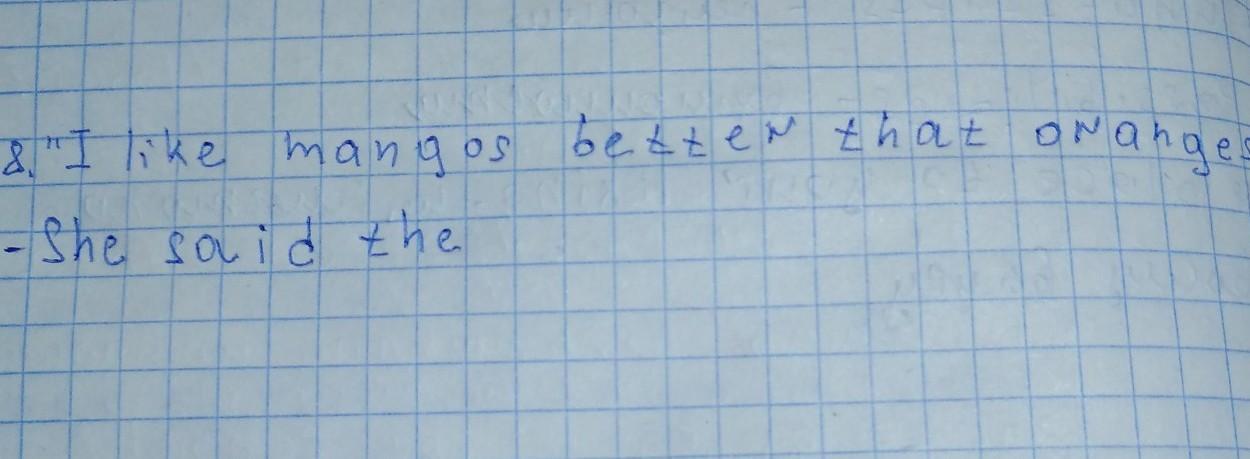 8. "I like mangos better that oranges
- She said the